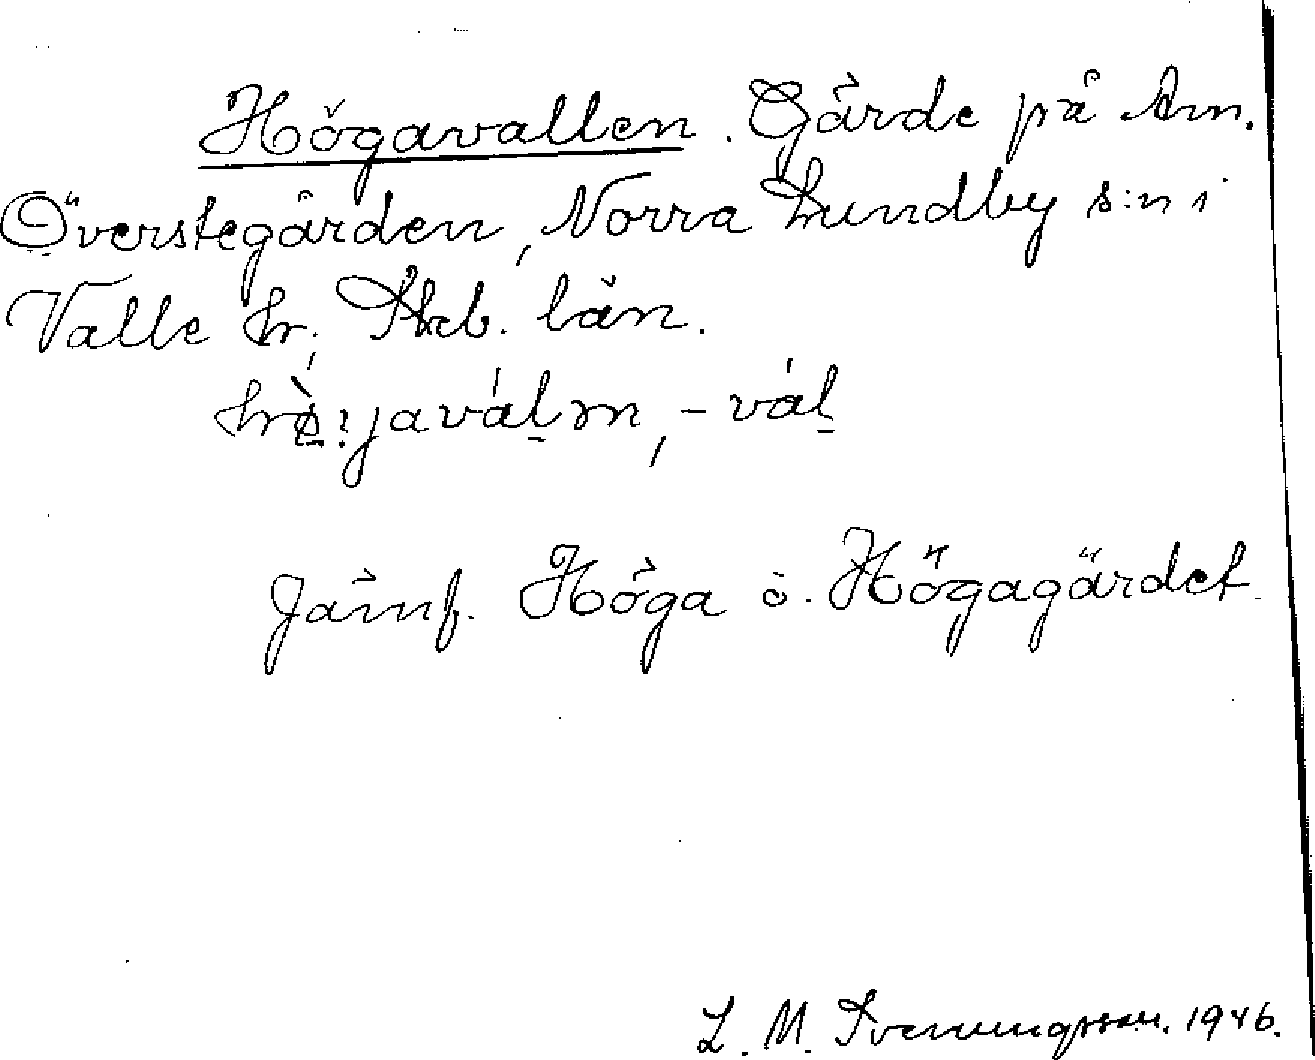 Högavallen. Gärde på hm.
Överstegården, Norra Lundby s:n i
Valle hr, Skb. län.
Jämf. Höga o. Högagärdet.
L. M. Svenungsson. 1946.